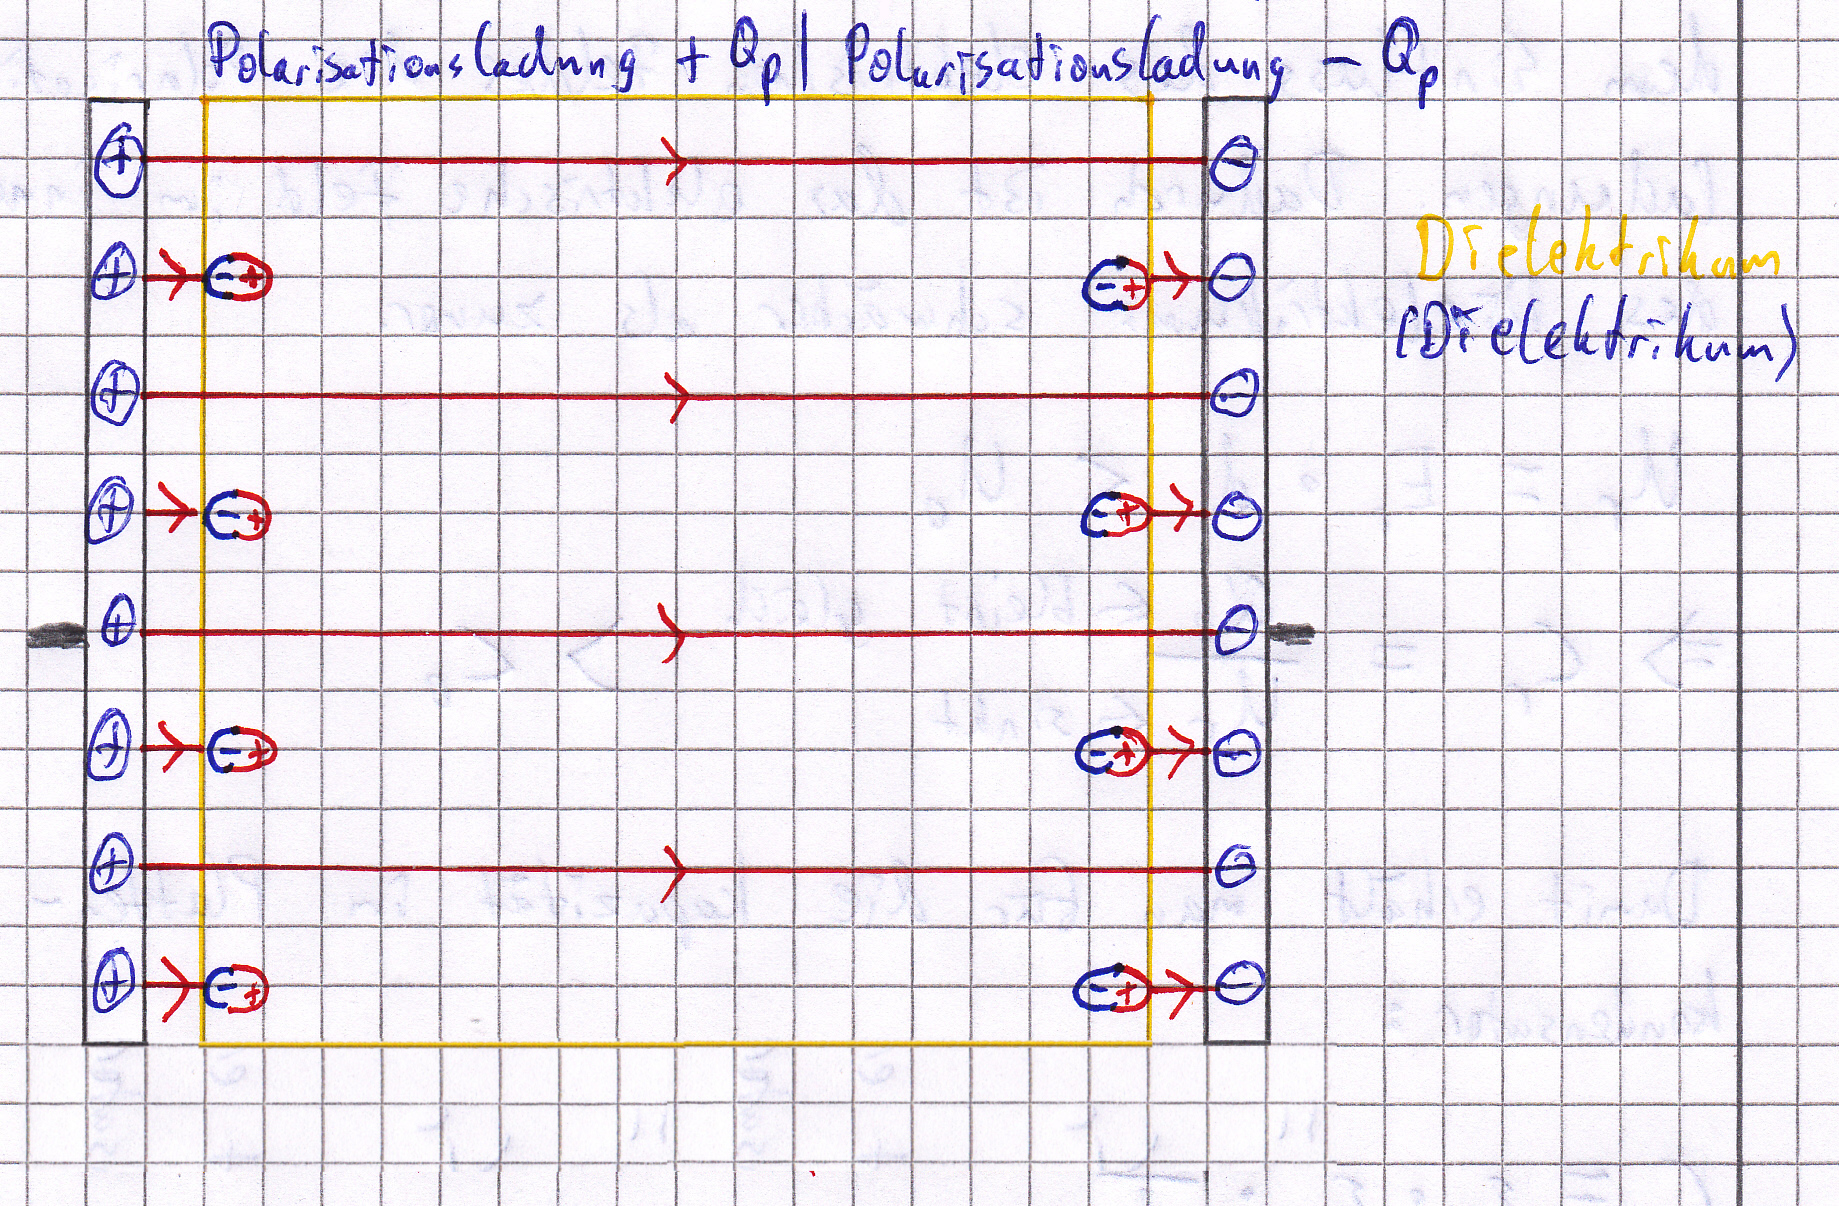 Polarisationsladung + Qp | Polarisationsladung - Qp
Dielektrikum
(Dielektrikum)